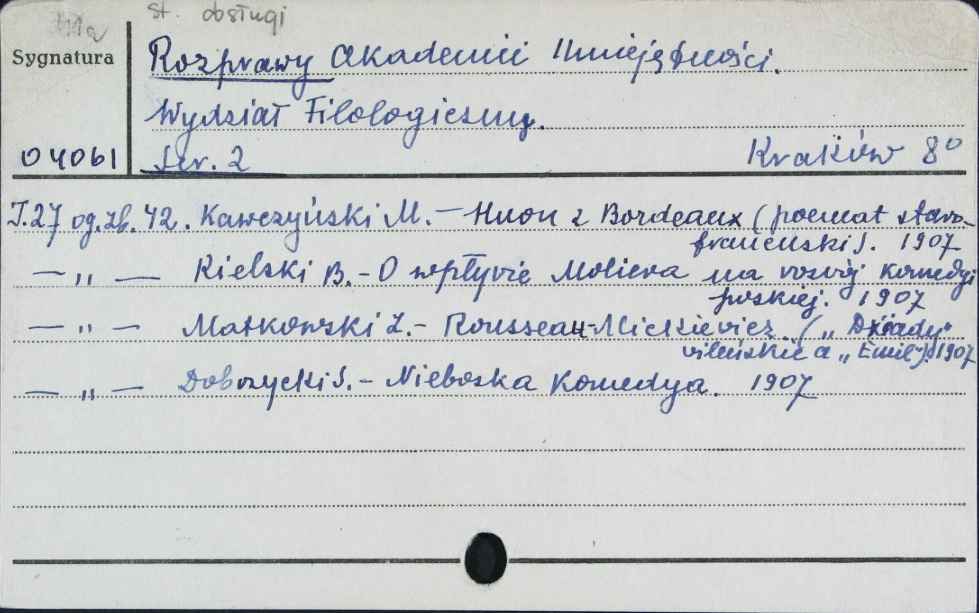 st. obsługi
Sygnatura
Rozprawy Akademii Umiejętności.
Wydział Filologiczny.
04061
Ser. 2
Kraków 8°
T.27 og. zb. 42. Kawczyński M. — Huon z Bordeaux (poemat staro-
francuski). 1907
— „ — Kielski B. - O wpływie Moliera na rozwój komedyi
polskiej. 1907
— „ — Matkowski Z. - Rousseau-Mickiewicz („Dziady"
wileńskie a „Emil"). 1907
— „ — Dobrzycki S. - Nieboska Komedya. 1907